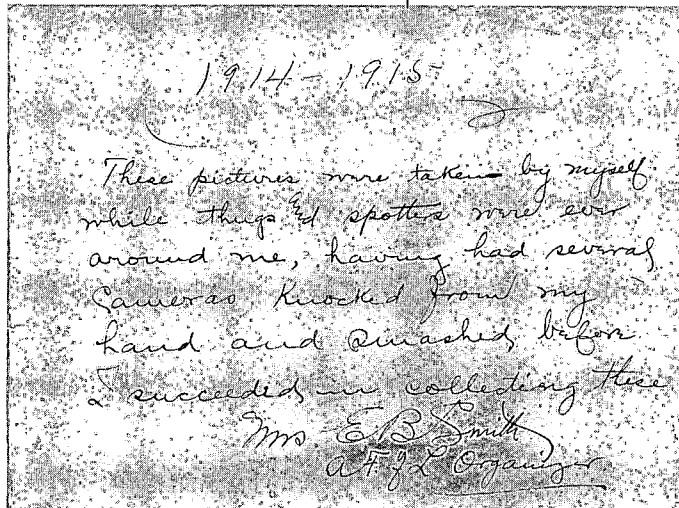 1914-1915
These pictures were taken by myself
while thugs and spotters were ever
around me, having had several
Cameras Knocked from my
hand and smashed, before
I succeeded in collecting these
Mrs E. B. Smith
A F of L Organizer.